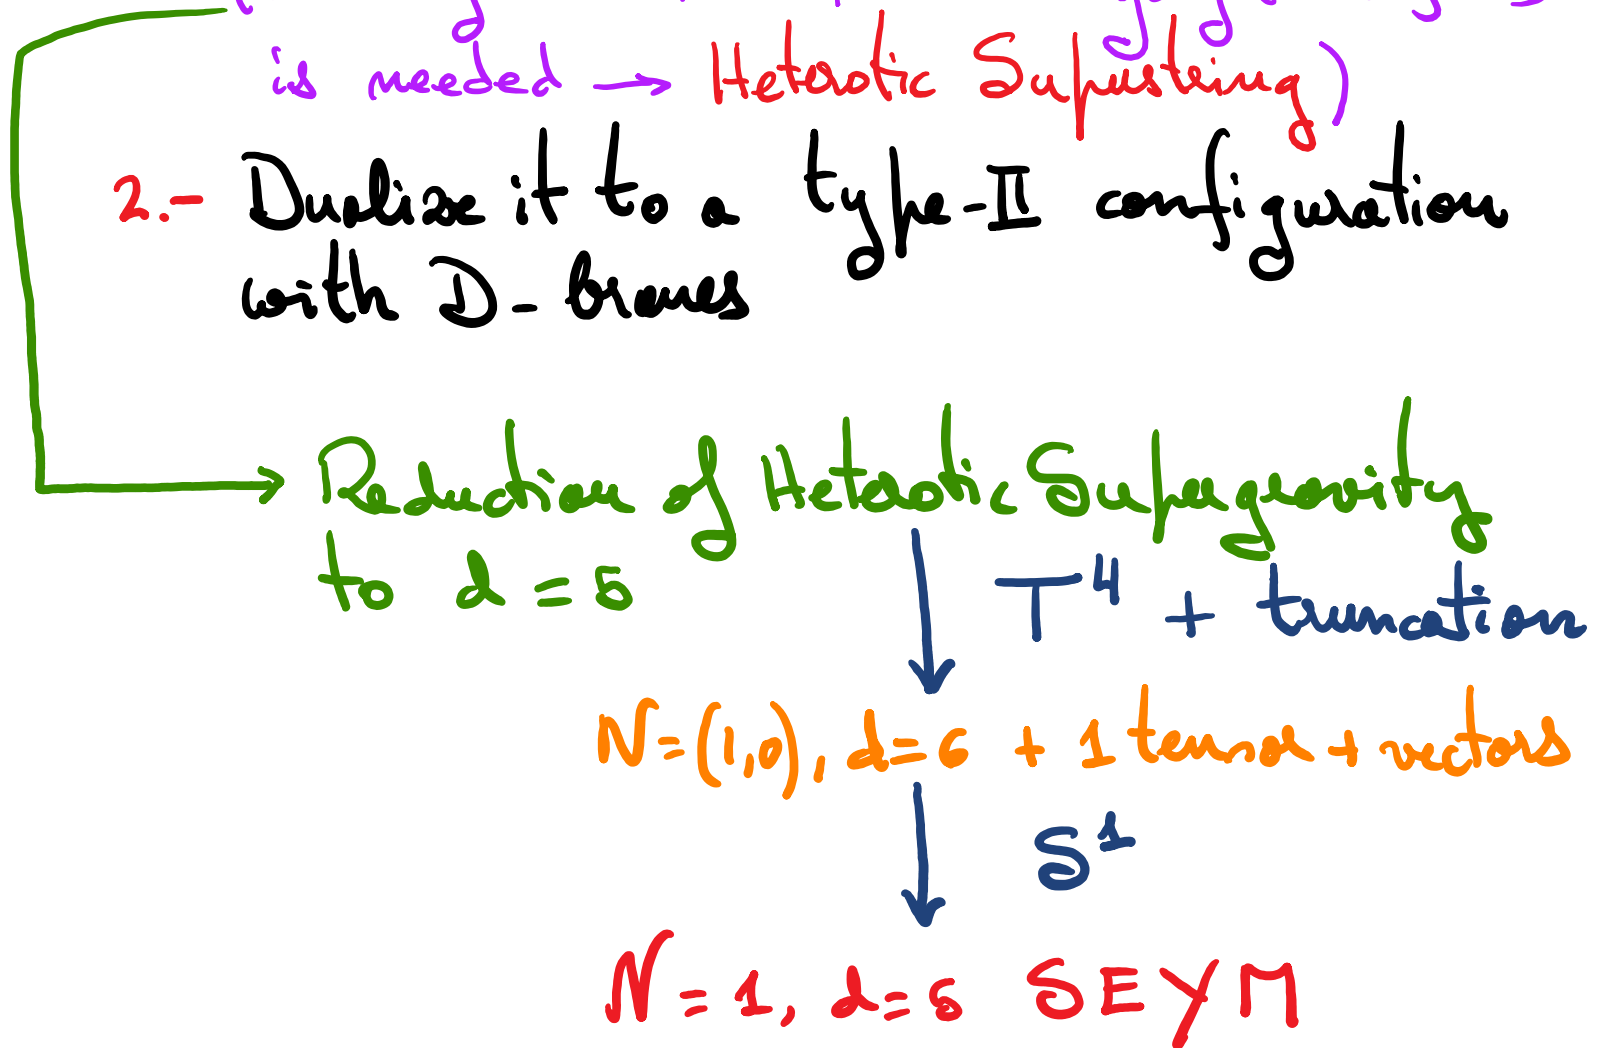 is needed → Heterotic Superstring)
2.- Dualize it to a type-II configuration
with D-branes
Reduction of Heterotic Supergravity
to d=5
T⁴ + truncation
N=(1,0), d=6 + 1 tensor + vectors
S¹
N=1, d=5 SEYM